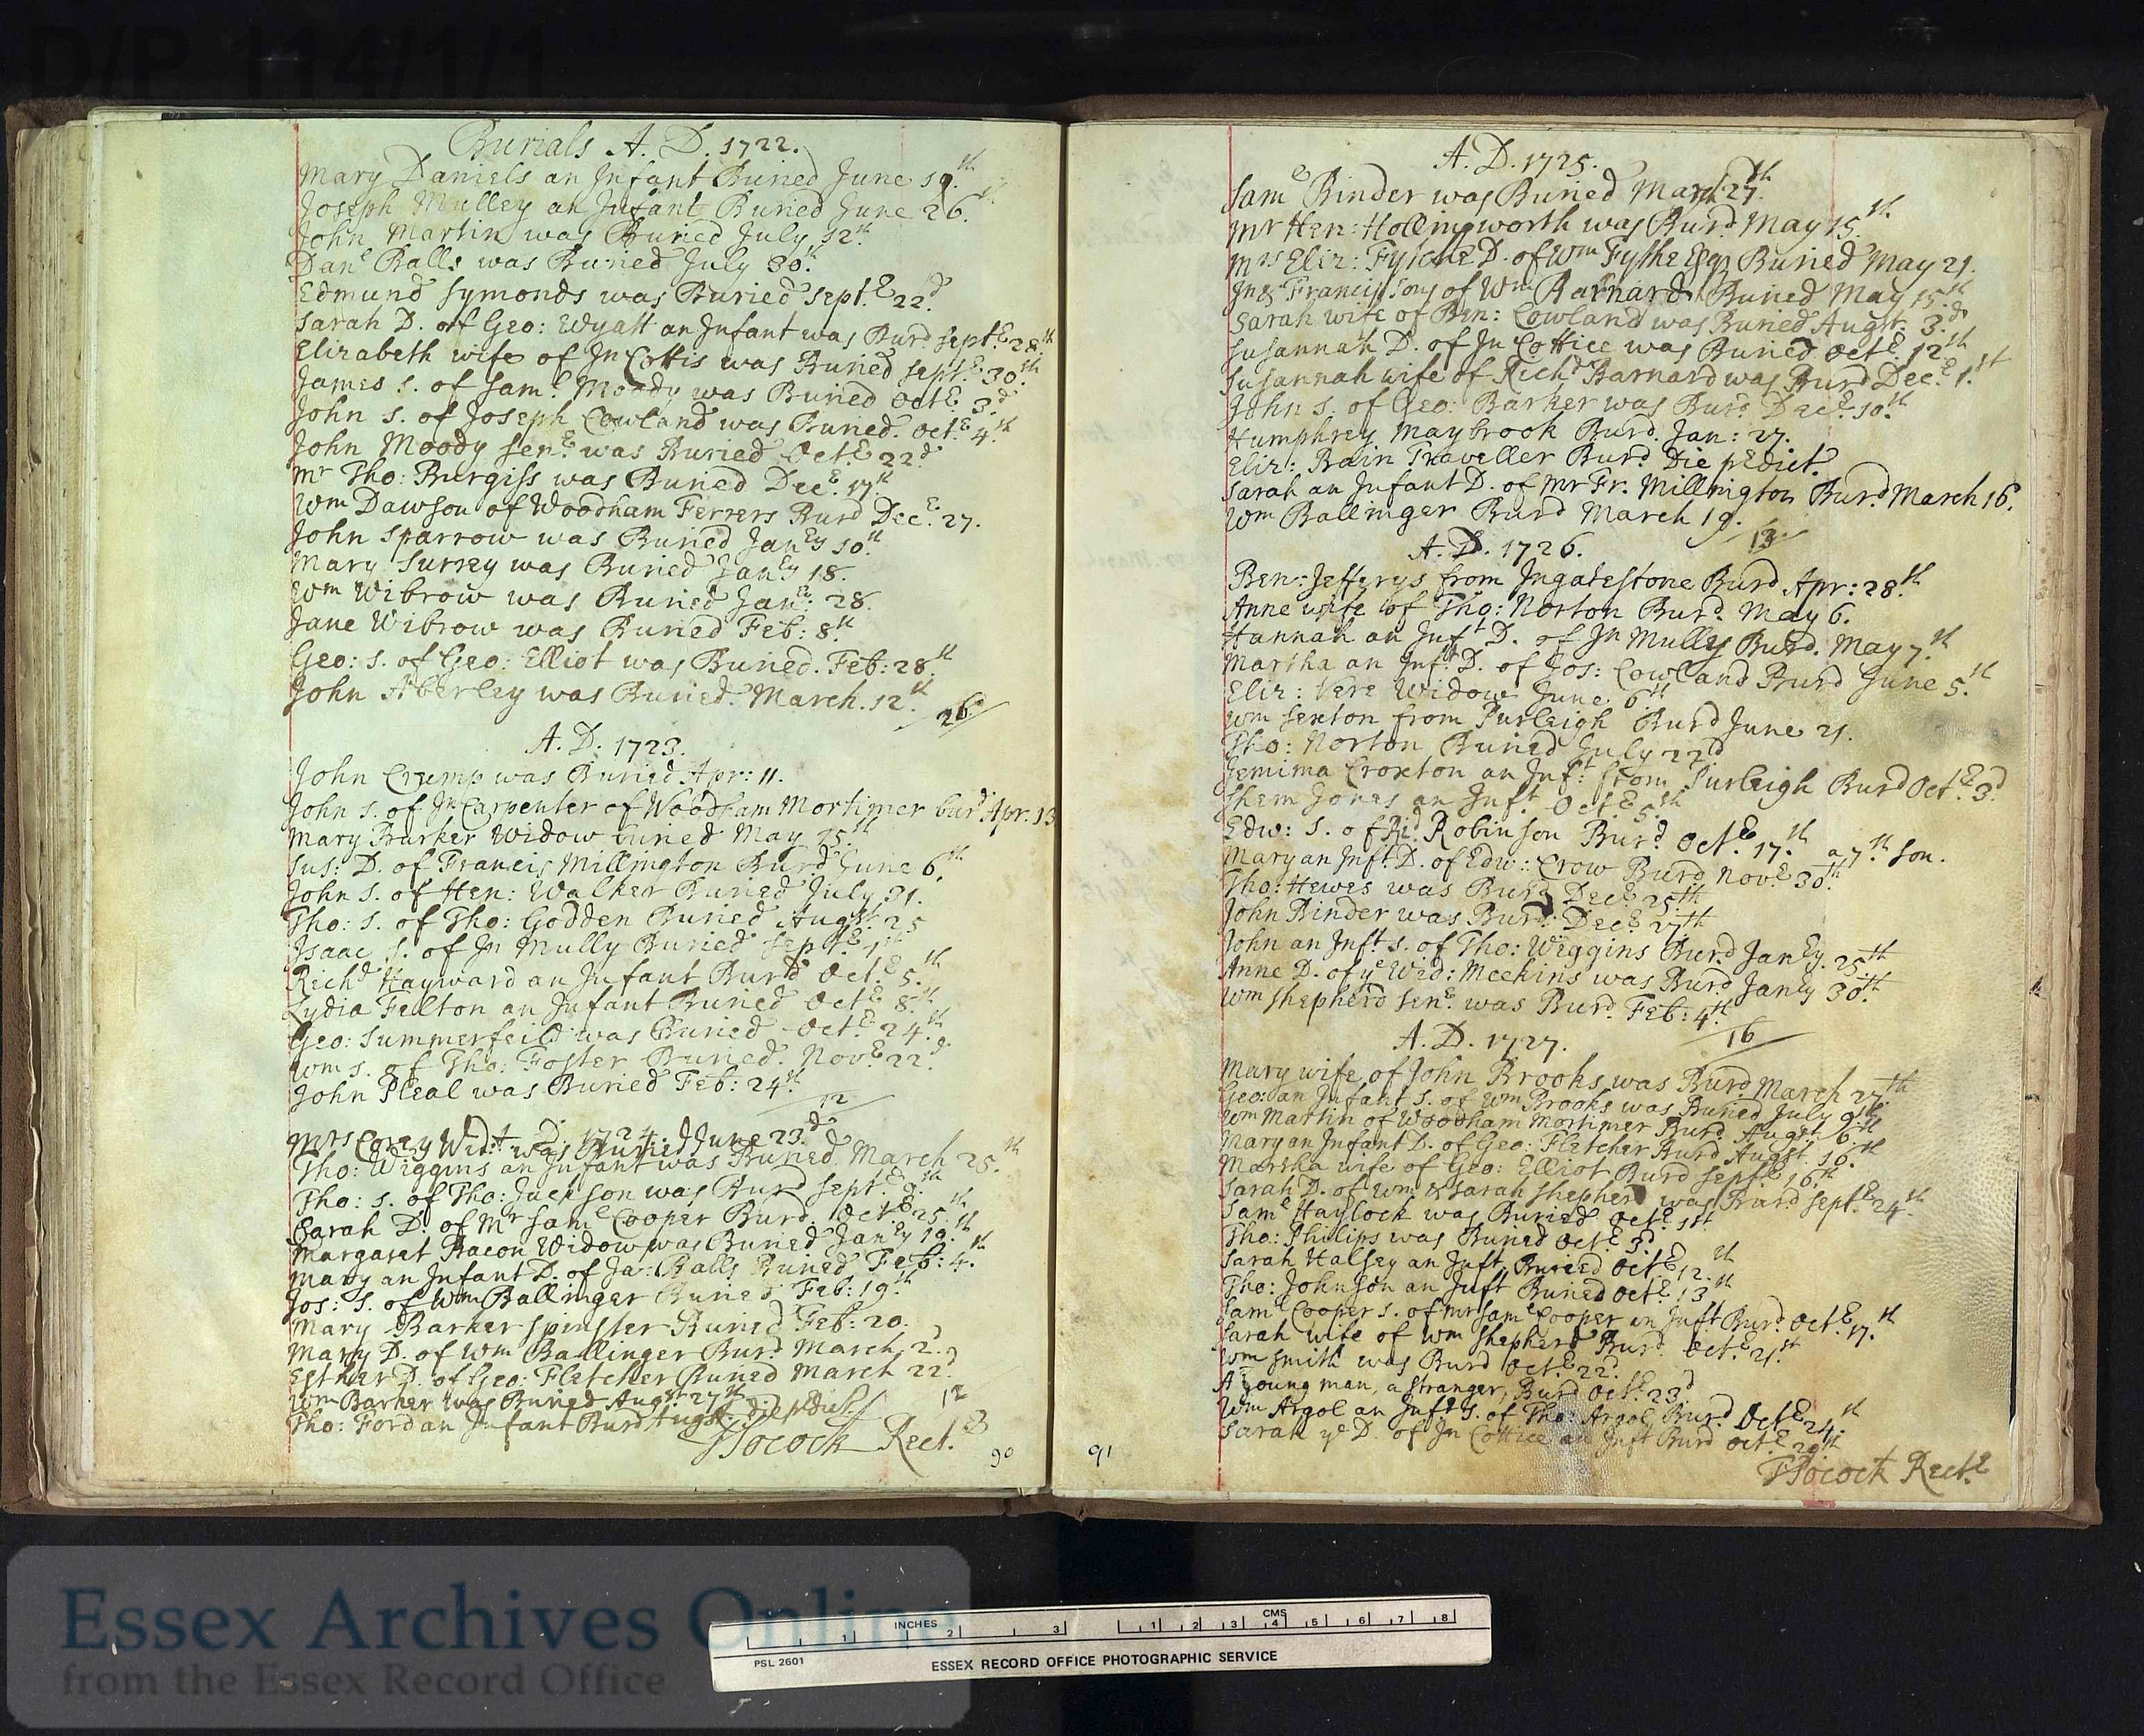 D/P 114/1/1
Burials A. D. 1722.
Mary Daniels an Infant Buried June 19.th
Joseph Mulley an Infant Buried June 26.th
John Martin was Buried July 12.th
Dan.l Balls was Buried July 30.th
Edmund Symonds was Buried Sept.r 22.d
Sarah D. of Geo: Wyatt an Infant was Bur.d Sept.r 28.th
Elizabeth wife of Jn Cottis was Buried Sept.r 30.th
James S. of Sam.l Moody was Buried Oct.r 3.d
John S. of Joseph Cowland was Buried. Oct.r 4.th
John Moody Sen.r was Buried Oct.r 22.d
Mr Tho: Burgiss was Buried Dec.r 17.th
Wm Dawson of Woodham Ferrers Burd Dec.r 27.
John Sparrow was Buried Jan.ry 10.th
Mary Surrey was Buried Jan.ry 18.
Wm Wibrow was Buried Jan.ry 28.
Jane Wibrow was Buried Feb: 8.th
Geo: S. of Geo: Elliot was Buried. Feb: 28.th
John Aberley was Buried. March. 12.th
26
A. D. 1723.
John Crump was Buried Apr: 11.
John S. of Jn Carpenter of Woodham Mortimer burd Apr. 13
Mary Barker Widow buried May 25.th
Sus: D. of Francis Millington Burd June 6.th
John S. of Hen: Walker Buried July 31.
Tho: S. of Tho: Godden Buried Augst. 25
Isaac S. of Jn Mully Buried Sept.r 1st
Rich.d Hayward an Infant Burd Oct.r 5.th
Lydia Felton an Infant Buried Oct.r 8.th
Geo: Summerfeild was Buried Oct.r 24.th
Wm S. of Tho: Foster Buried. Nov.r 22.d
John Pleal was Buried Feb: 24.th
12
A. D. 1724.
Mrs Corey Wid: was Buried June 23.d
Tho: Wiggins an Infant was Buried March 25.th
Tho: S. of Tho: Jackson was Burd Sept.r 9.th
Sarah D. of Mr Sam.l Cooper Burd. Oct.r 25.th
Margaret Bacon Widow was Buried Jan.ry 19.th
Mary an Infant D. of Ja: Balls Buried Feb: 4.th
Jos: S. of Wm Ballinger Buried Feb: 19.th
Mary Barker Spinster Buried Feb: 20.
Mary D. of Wm Ballinger Burd March 2.d
Esther D. of Geo: Fletcher Buried March 22.d
Wm Barker was Buried Augst 27th
12
Tho: Ford an Infant Burd Augst. die pdict
Pocock Rect.r
90
A. D. 1725.
Sam.l Binder was Buried March 27.th
Mr Hen: Hollingworth was Burd. May 15.th
Mrs Eliz: Fytche D. of Wm Fythe Esq Buried May 21.
Jn & Francis Sons of Wm Barnard Buried May 15.th
Sarah wife of Ben: Cowland was Buried Augst. 3.d
Susannah D. of Jn Cottice was Buried Oct.r 12.th
Susannah wife of Richd Barnard was Burd Dec.r 1.st
John S. of Geo: Barker was Burd. Dec.r 10.th
Humphrey Maybrook Burd. Jan: 27.
Eliz: Bain Traveller Burd. Die prdict.
Sarah an Infant D. of Mr Fr. Millington Burd March 16.
Wm Ballinger Burd March 19.
13
A. D. 1726.
Ben: Jefferys from Ingatestone Burd Apr: 28.th
Anne wife of Tho: Norton Burd. May 6.
Hannah an Inft D. of Jn Mully Burd. May 7.th
Martha an Inft. D. of Jos: Cowland Burd June 5.th
Eliz: Vere Widow June. 6.th
Wm Sexton from Purleigh Burd June 21.
Tho: Norton Buried July 22d
Jemima Croxton an Inft: from Purleigh Burd Oct.r 3.d
Shem Jones an Inft. Oct.r 5.th
Edw: S. of Rd Robinson Burd Oct.r 17.th a 7.th Son.
Mary an Inft. D. of Edw: Crow Burd Nov.r 30.th
Tho: Hewes was Burd Dec.r 25th
John Binder was Burd. Dec.r 27th
John an Inft. S. of Tho: Wiggins Burd Jan.ry 25th
Anne D. of ye Wid: Meekins was Burd Janry 30.th
Wm Shepherd Sen.r was Burd. Feb: 4.th
16
A. D. 1727.
Mary wife of John Brooks was Burd March 27th
Geo: an Infant S. of Wm Brooks was Buried July 9.th
Wm Martin of Woodham Mortimer Burd. Augst. 6.th
Mary an Infant D. of Geo: Fletcher Burd Augst. 16.th
Martha wife of Geo: Elliot Burd Sept.r 16.th
Sarah D. of Wm & Sarah Shepherd was Burd Sept.r 24.th
Sam.l Haylock was Buried Oct.r 1st
Tho: Philips was Buried Oct.r 3.d
Sarah Halsey an Inft. Buried Oct.r 12.th
Tho: Johnson an Inft Buried Oct.r 13.th
Sam.l Cooper S. of Mr Sam.l Cooper an Inft Burd Oct.r 17.th
Sarah wife of Wm Shepherd Burd. Oct.r 21.st
Wm Smith was Burd Oct.r 22.d
A young man, a stranger, Burd Oct.r 23d
Wm Argol an Inft S. of Tho: Argol Burd. Oct.r 24.th
Sarah ye D. of Jn Cottice an Inft Burd Oct.r 29th
Pocock Rect.r
91
Essex Archives Online
from the Essex Record Office
INCHES
CMS
1 2 3 1 2 3 4 5 6 7 8
PSL 2601
ESSEX RECORD OFFICE PHOTOGRAPHIC SERVICE